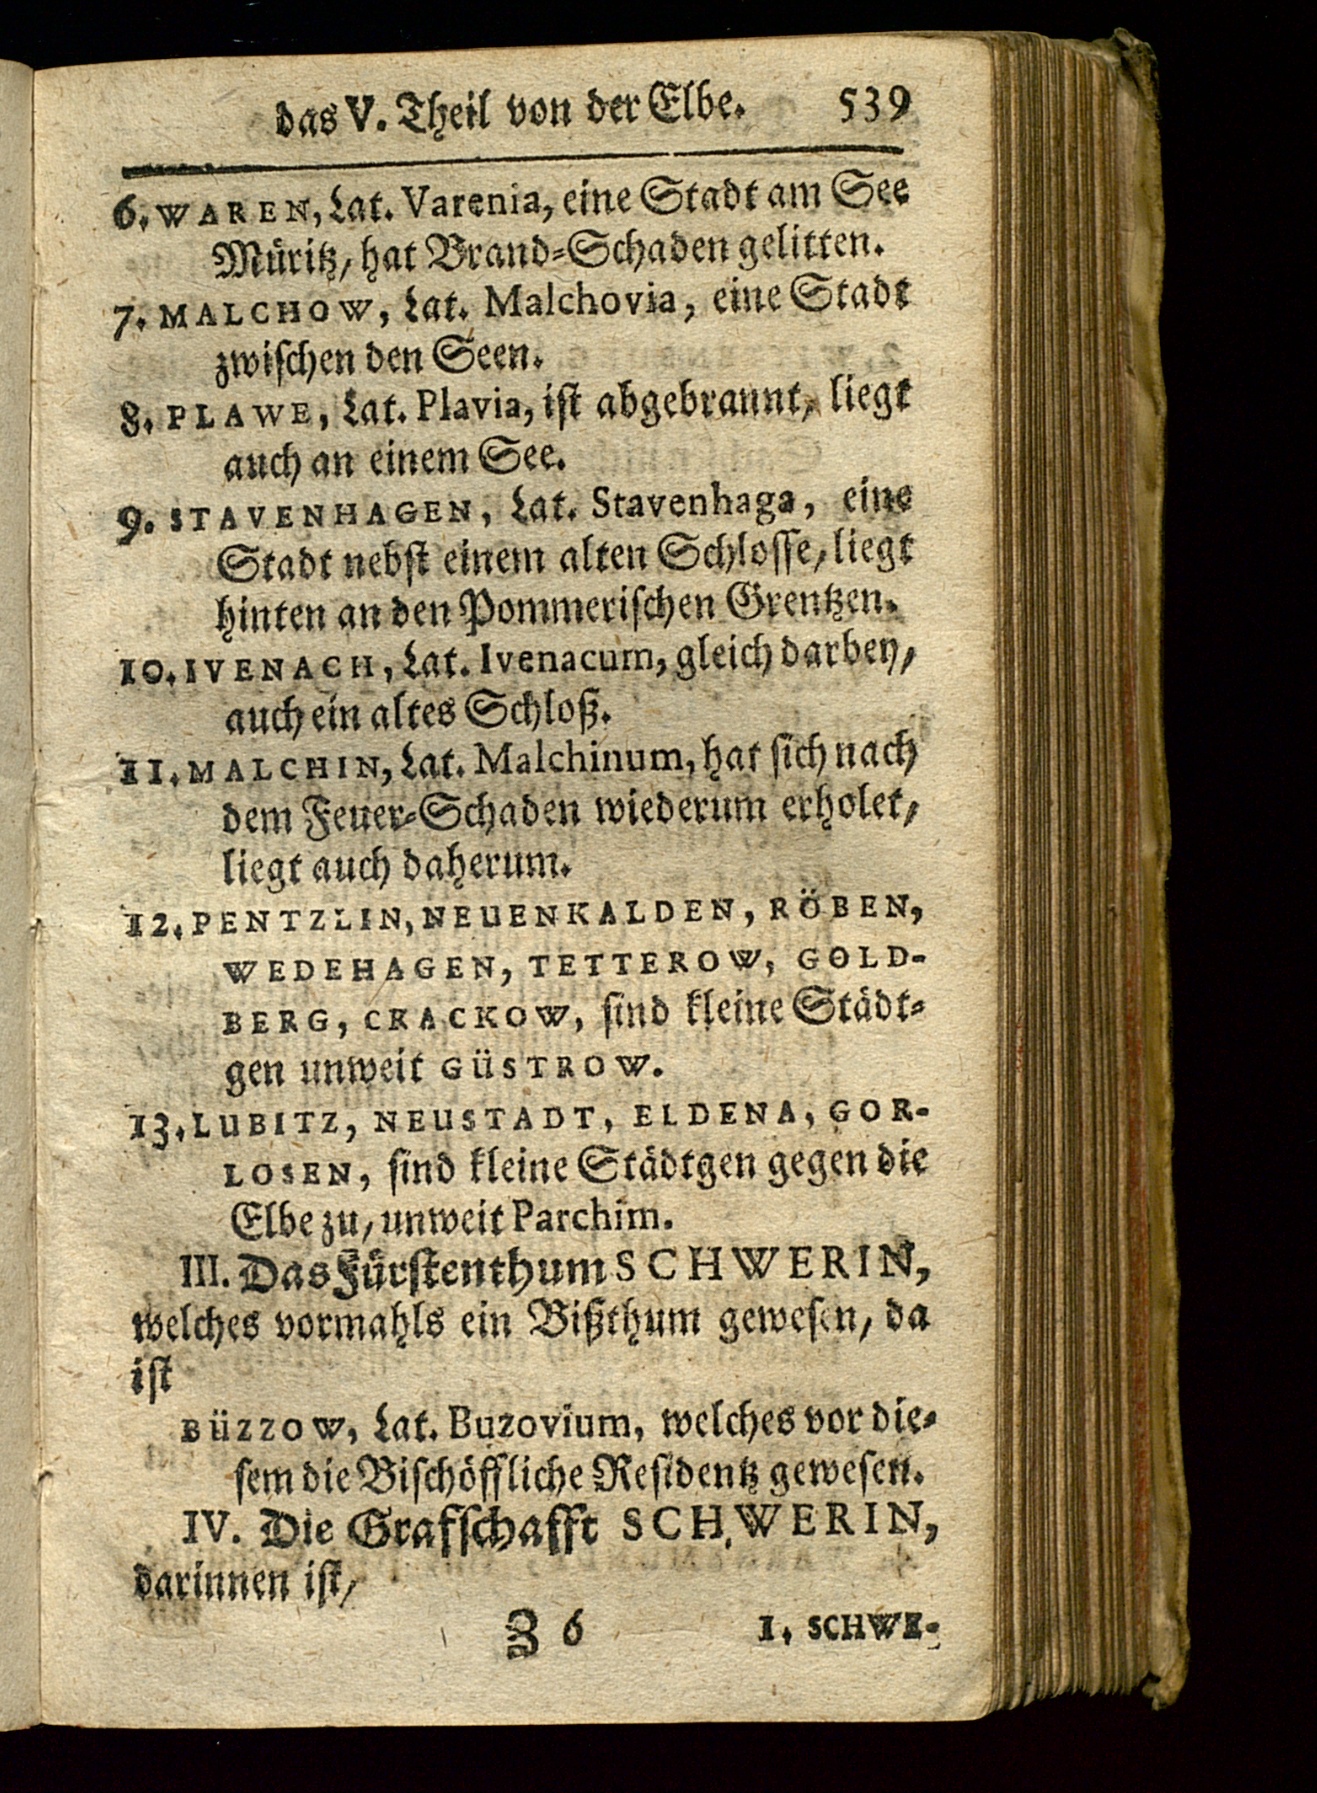 das V. Theil von der Elbe. 539
6. WAREN, Lat. Varenia, eine Stadt am See
Müritz, hat Brand-Schaden gelitten.
7. MALCHOW, Lat. Malchovia, eine Stadt
zwischen den Seen.
8. PLAWE, Lat. Plavia, ist abgebrannt, liegt
auch an einem See.
9. STAVENHAGEN, Lat. Stavenhaga, eine
Stadt nebst einem alten Schlosse, liegt
hinten an den Pommerischen Grentzen.
10. IVENACH, Lat. Ivenacum, gleich darbey,
auch ein altes Schloß.
11. MALCHIN, Lat. Malchinum, hat sich nach
dem Feuer-Schaden wiederum erholet,
liegt auch daherum.
12. PENTZLIN, NEUENKALDEN, RÖBEN,
WEDEHAGEN, TETTEROW, GOLD-
BERG, CRACKOW, sind kleine Städt-
gen unweit GÜSTROW.
13. LUBITZ, NEUSTADT, ELDENA, GOR-
LOSEN, sind kleine Städtgen gegen die
Elbe zu, unweit Parchim.
III. Das Fürstenthum SCHWERIN,
welches vormahls ein Bißthum gewesen, da
ist
BÜZZOW, Lat. Buzovium, welches vor die-
sem die Bischöffliche Residentz gewesen.
IV. Die Grafschafft SCHWERIN,
darinnen ist,
Z 6 1. SCHWE-